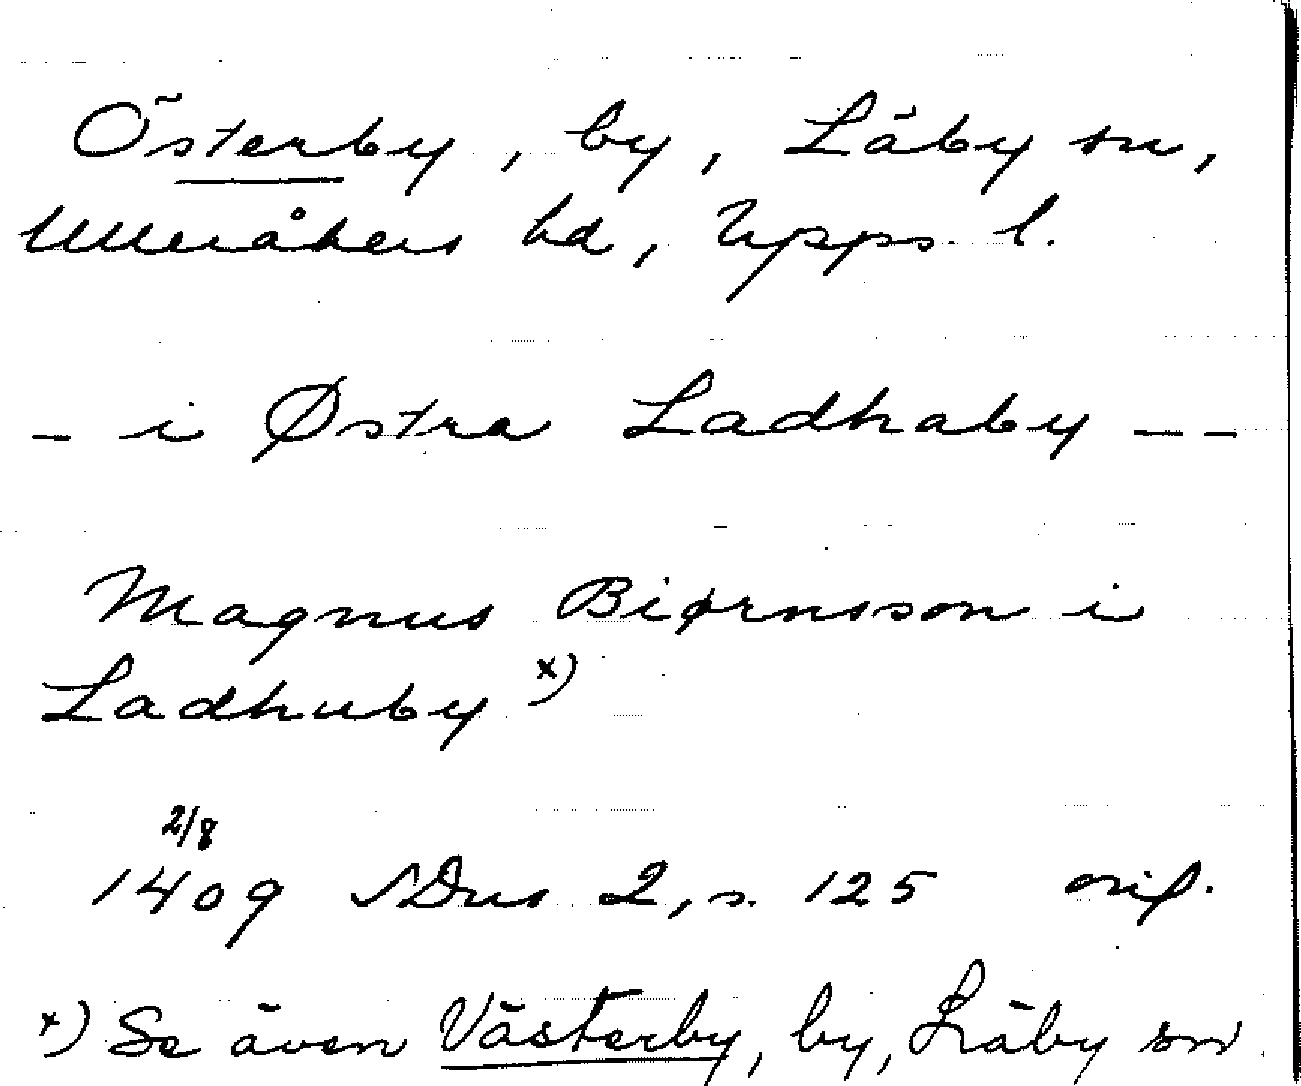 Österby, by, Läby sn,
Ulleråkers hd, Upps. l.
- i Østra Ladhaby - -
Magnus Biørnsson i
Ladhuby x)
2/8
1409 SDns 2, s. 125 orig.
x) Se även Västerby, by, Läby sn